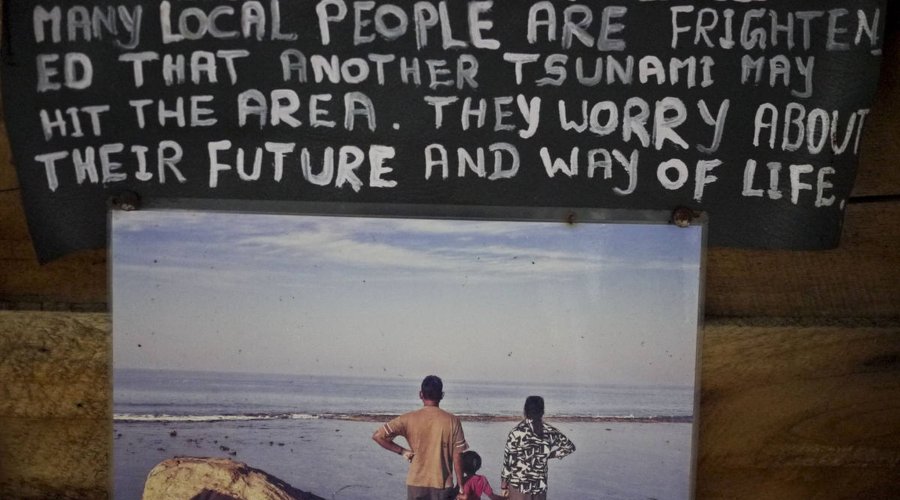 MANY LOCAL PEOPLE ARE FRIGHTEN
ED THAT ANOTHER TSUNAMI MAY
HIT THE AREA. THEY WORRY ABOUT
THEIR FUTURE AND WAY OF LIFE.